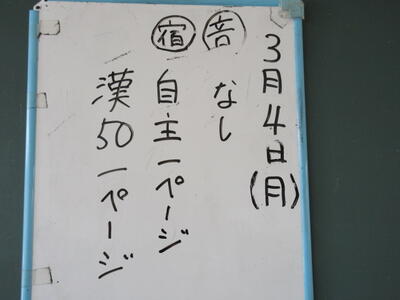 3月4日(月)
音 なし
宿 自主一ページ
漢50一ページ